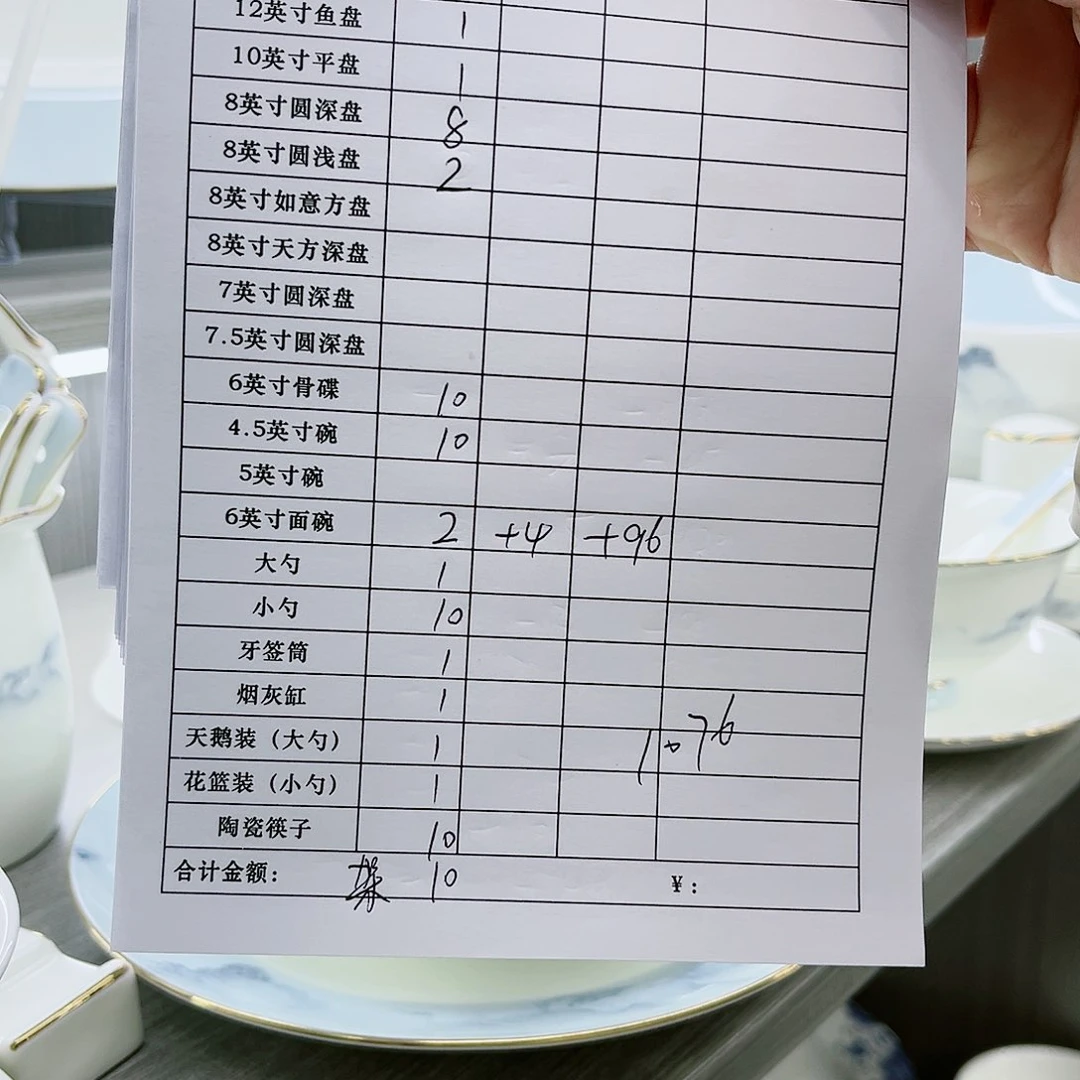 12英寸鱼盘 1
10英寸平盘 1
8英寸圆深盘 8
8英寸圆浅盘 2
8英寸如意方盘
8英寸天方深盘
7英寸圆深盘
7.5英寸圆深盘
6英寸骨碟 10
4.5英寸碗 10
5英寸碗
6英寸面碗 2 +4 +96
大勺 1
小勺 10
牙签筒 1
烟灰缸 1
1076
天鹅装（大勺） 1
花篮装（小勺） 1
陶瓷筷子 10
合计金额: 10 ¥: